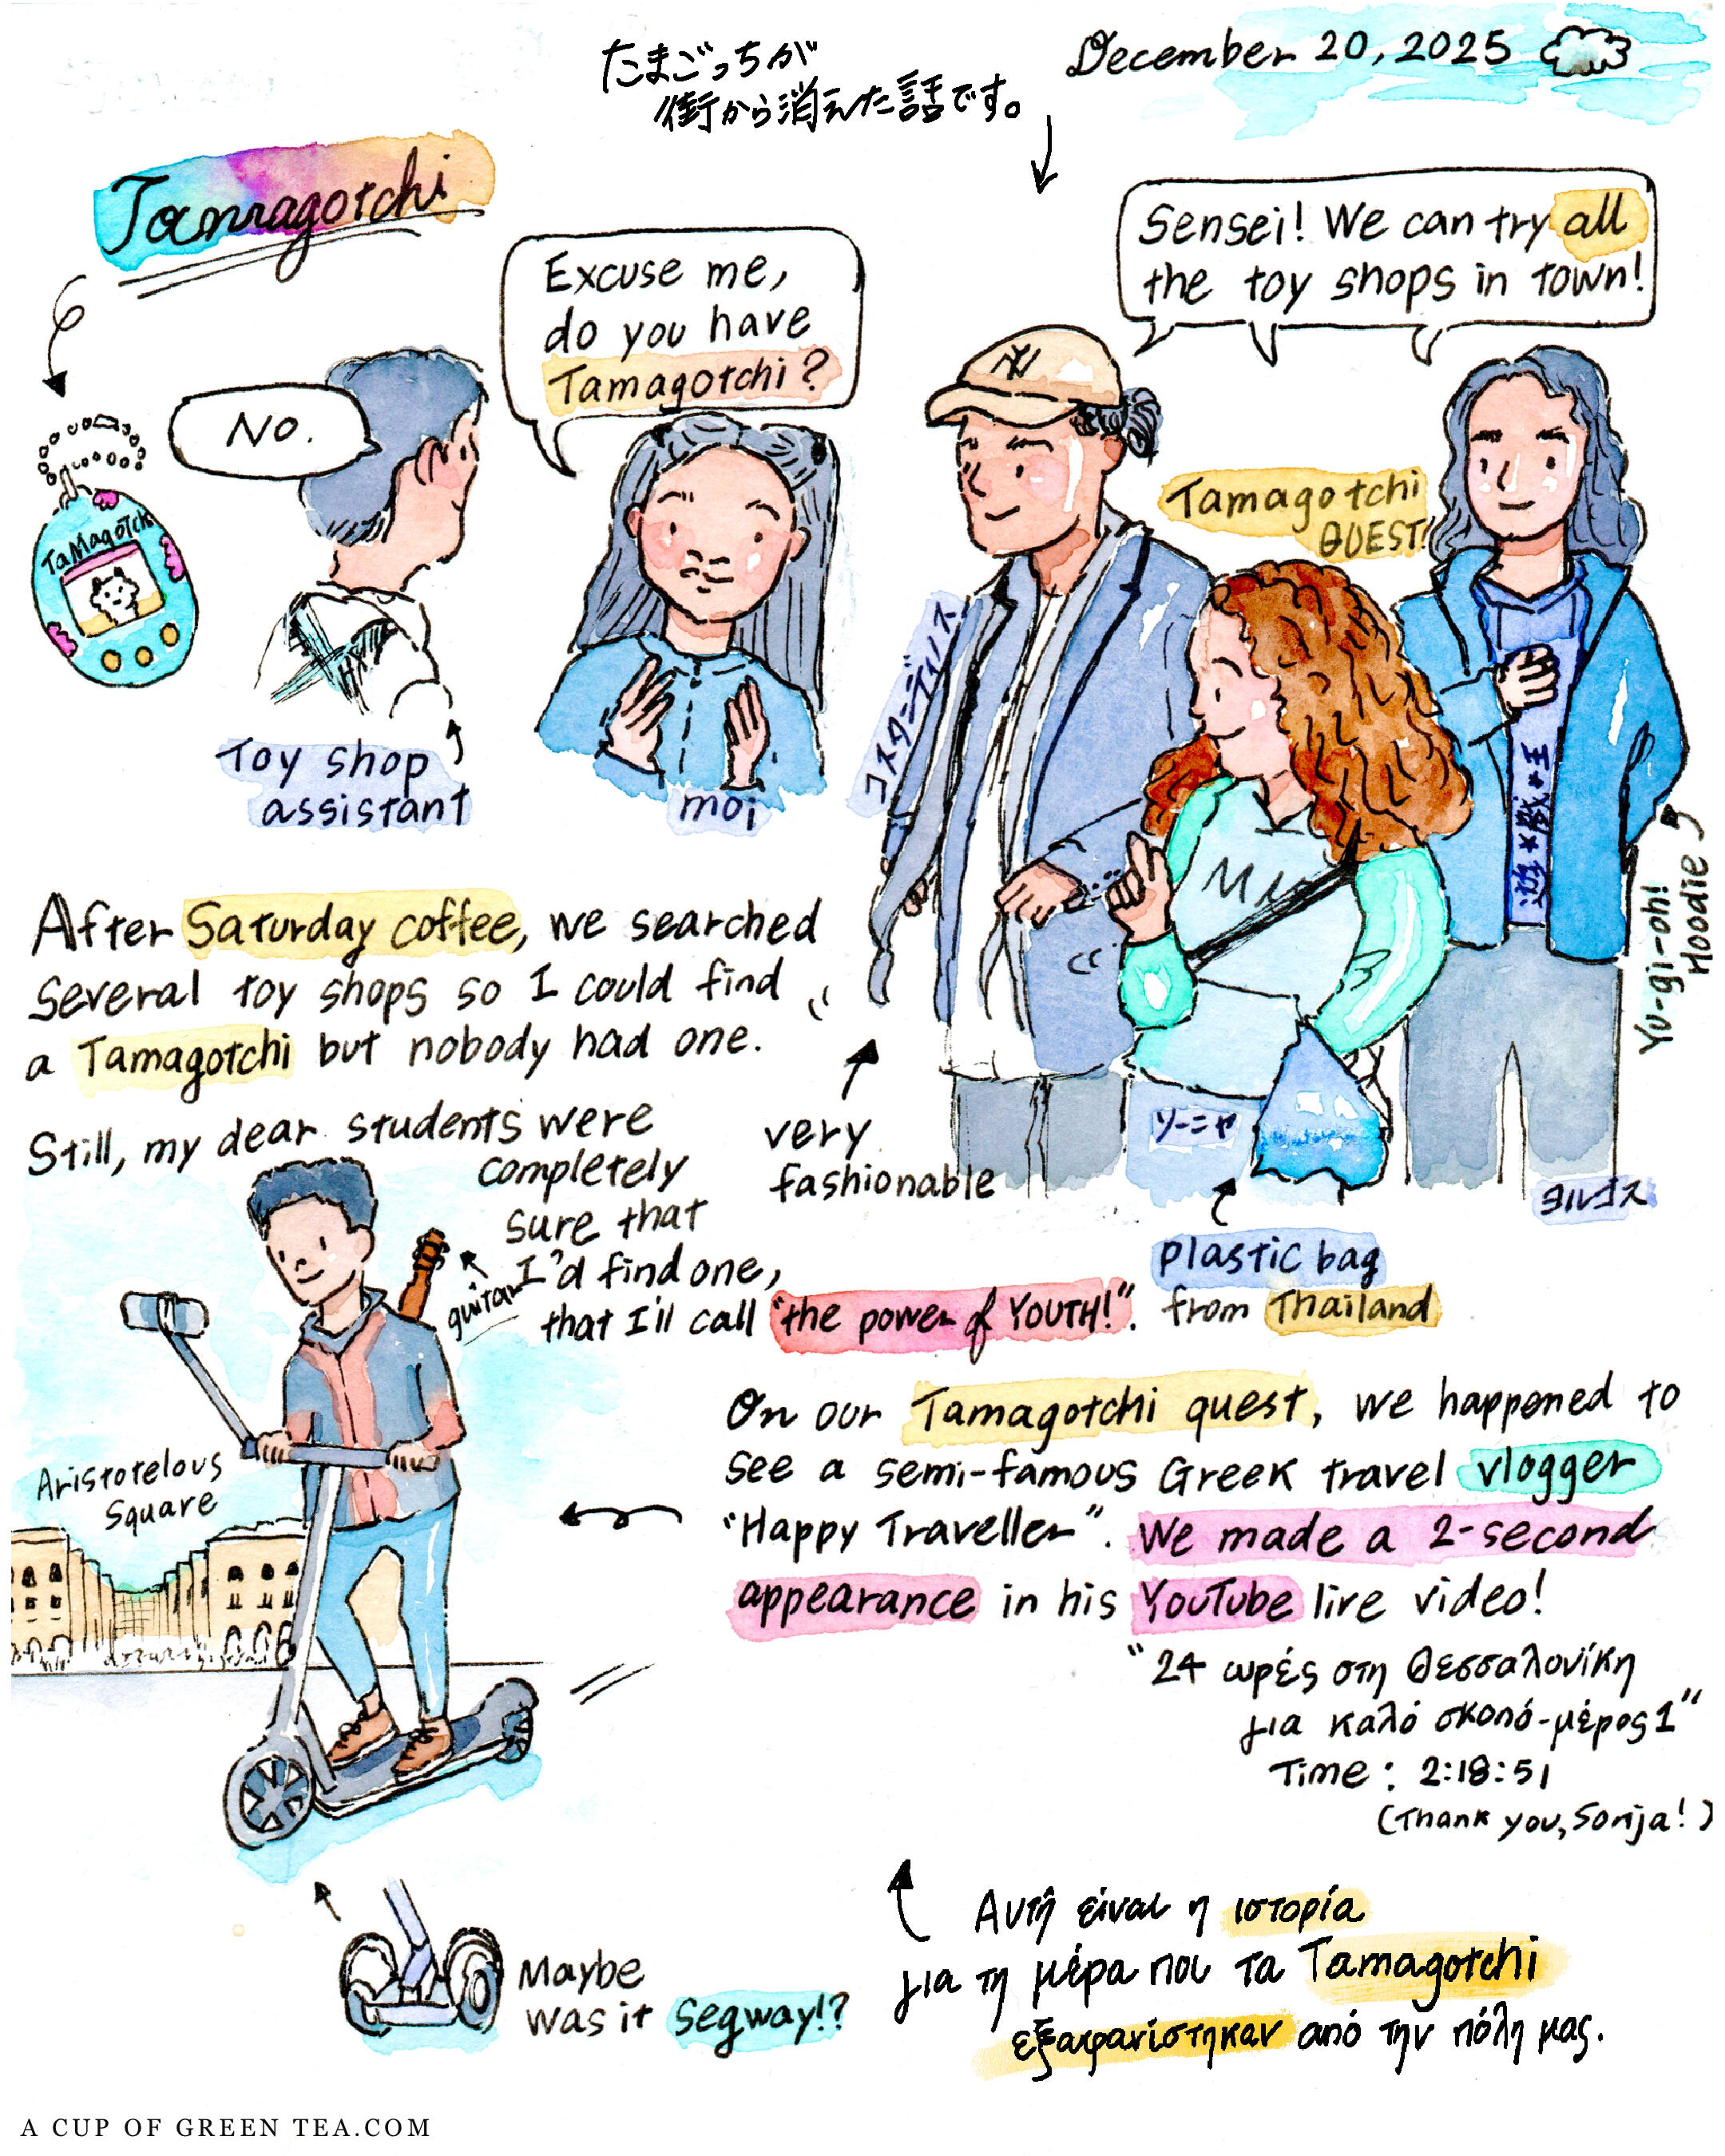 December 20, 2025
たまごっちが
街から消えた話です。
Tamagotchi
Sensei! We can try all
the toy shops in town!
Excuse me,
do you have
Tamagotchi?
No.
NY
Tamagotchi
QUEST!
Tamagotchi
コスタンディノス
Toy shop
assistant
moi
遊★戯★王
Yu-gi-oh!
Hoodie
After Saturday coffee, we searched
several toy shops so I could find
a Tamagotchi but nobody had one.
Still, my dear students were
completely
sure that
I'd find one,
that I'll call "the power of YOUTH!".
guitar
very
fashionable
ソーニャ
ヨルゴス
plastic bag
from Thailand
Aristotelous
Square
On our Tamagotchi quest, we happened to
see a semi-famous Greek travel vlogger
"Happy Traveller". We made a 2-second
appearance in his YouTube live video!
"24 ωρές στη Θεσσαλονίκη
για καλό σκοπό-μέρος 1"
Time: 2:18:51
(Thank you, Sonja!)
Maybe
was it segway!?
Αυτή είναι η ιστορία
για τη μέρα που τα Tamagotchi
εξαφανίστηκαν από την πόλη μας.
A CUP OF GREEN TEA.COM